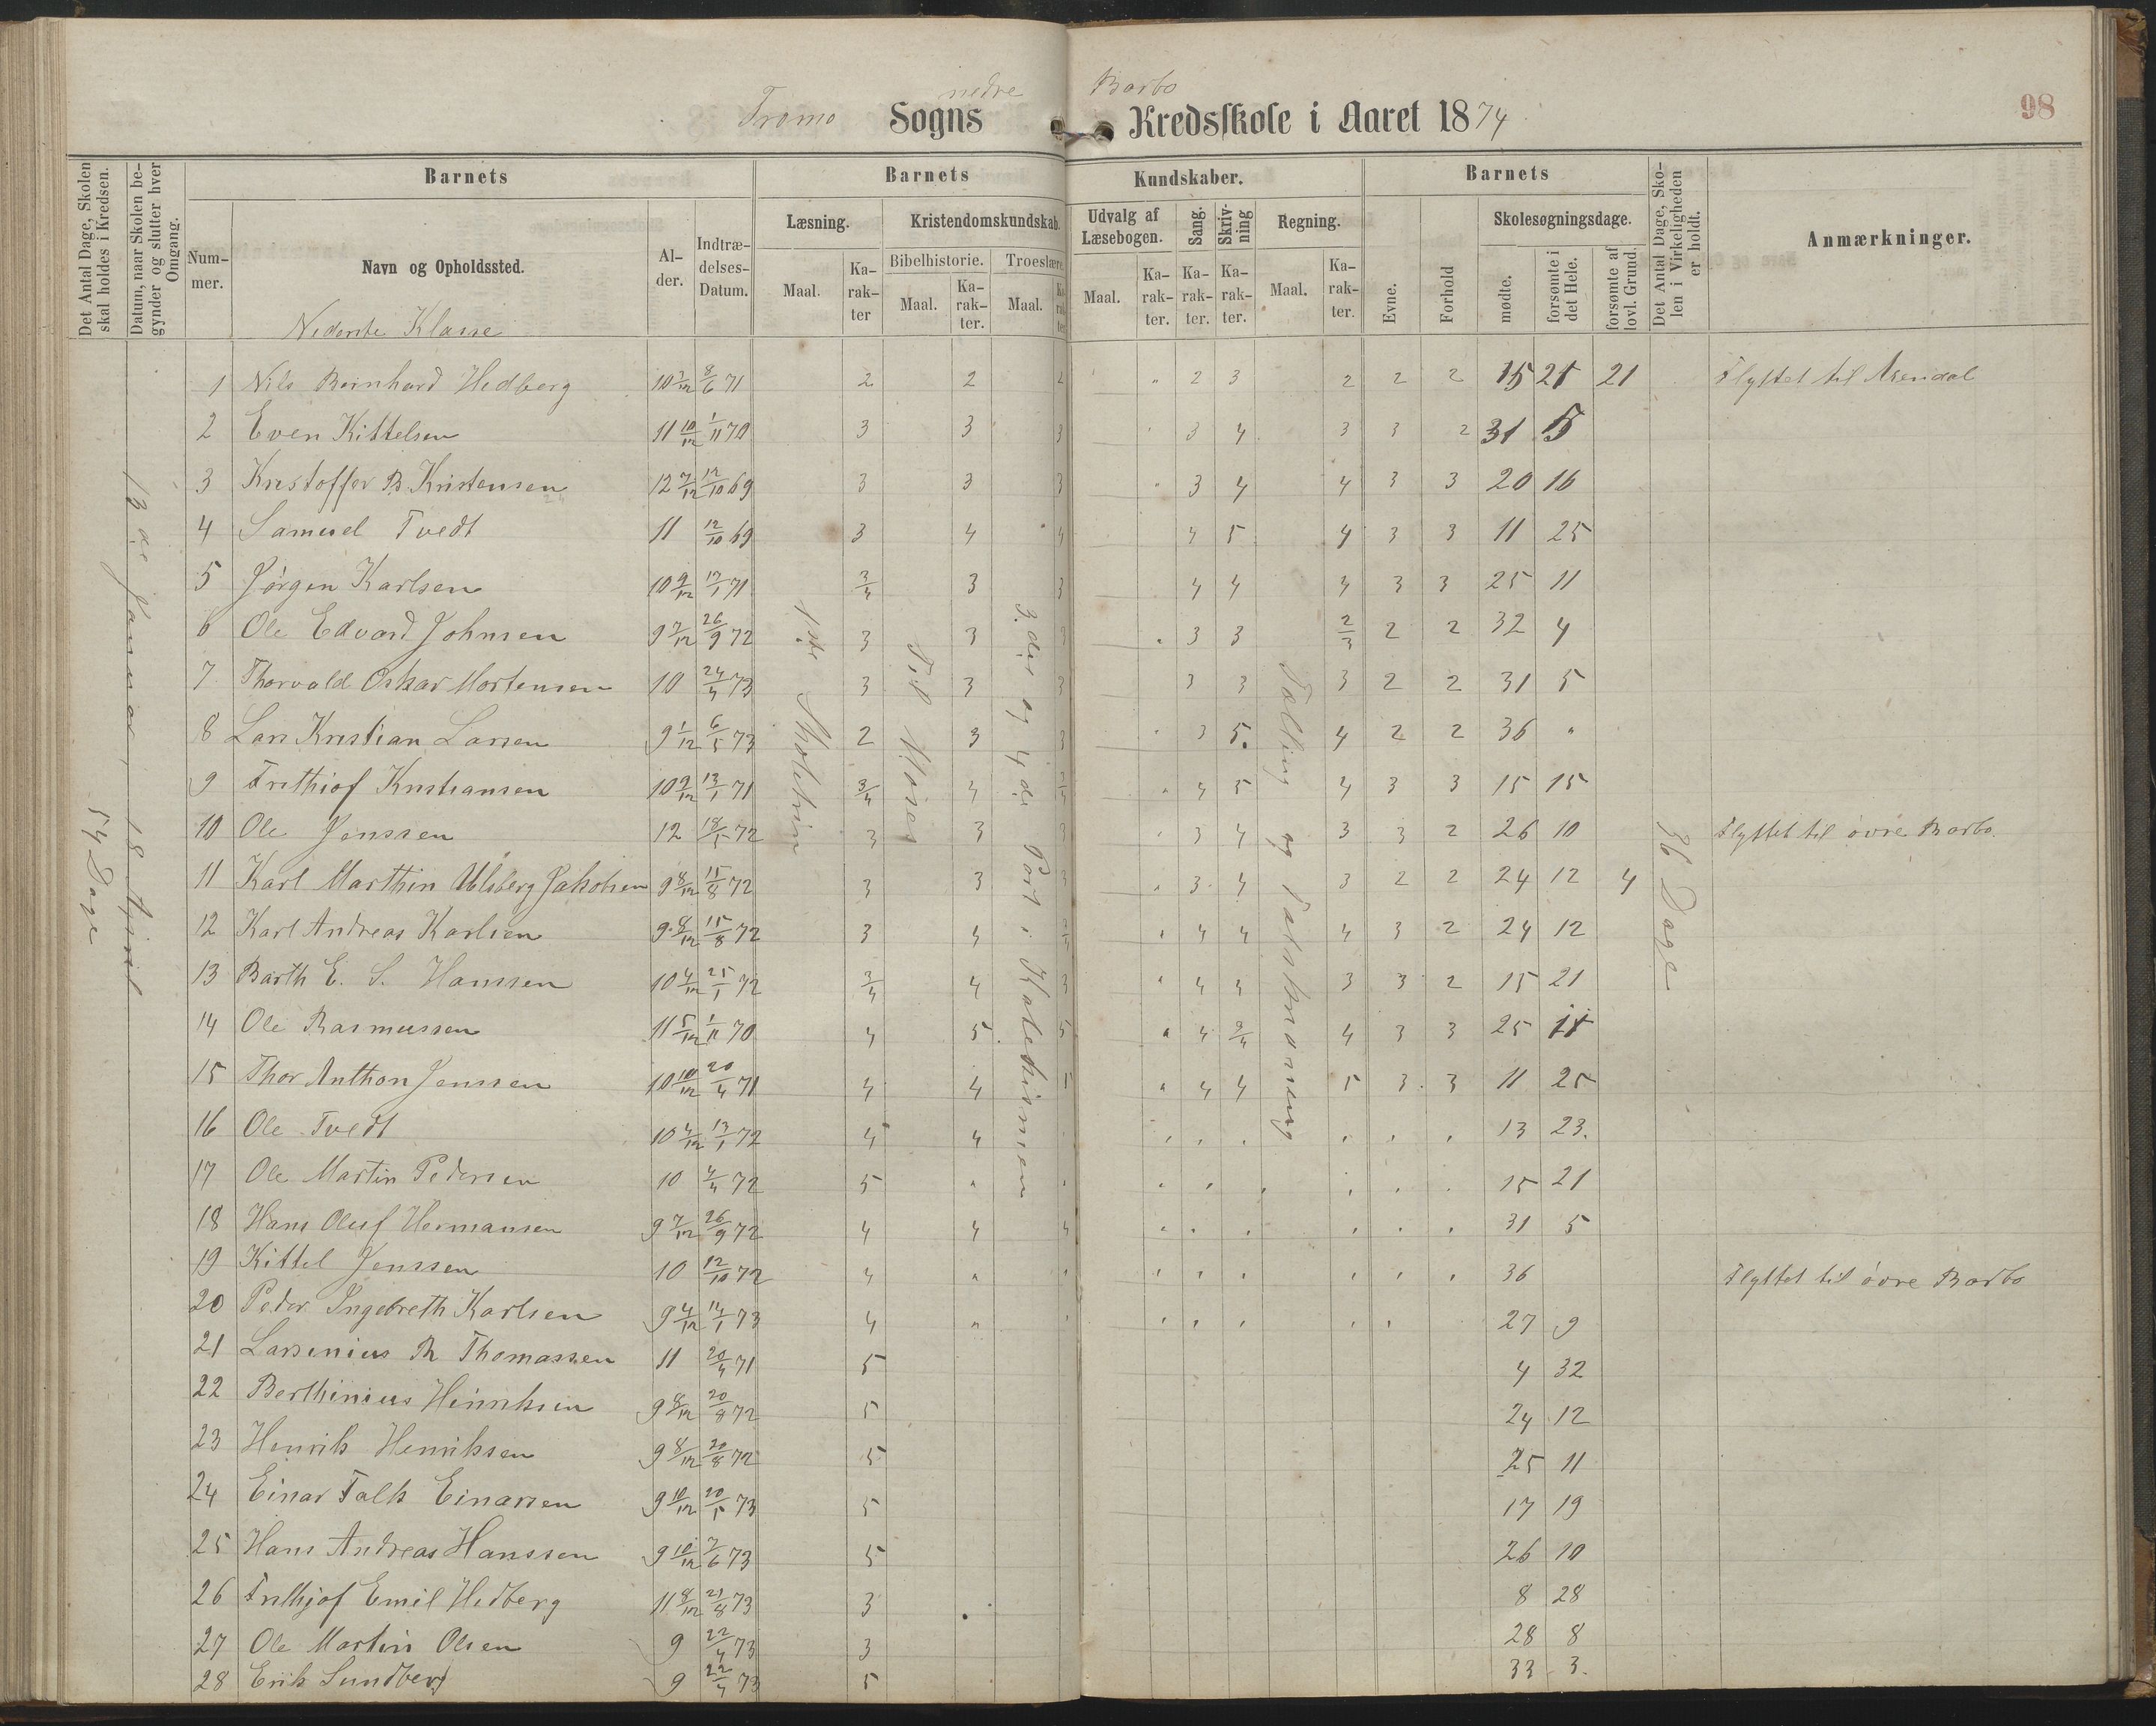 nedre Barbo
Tromø Sogns Kredsskole i Aaret 1874
98
Det Antal Dage, Skolen skal holdes i Kredsen.
Datum, naar Skolen begynder og slutter hver Omgang.
Barnets
Barnets
Kundskaber.
Barnets
Det Antal Dage, Skolen i Virkeligheden er holdt.
Anmærkninger.
Nummer.
Navn og Opholdssted.
Alder.
Indtrædelses-Datum.
Læsning.
Kristendomskundskab.
Udvalg af Læsebogen.
Sang.
Skrivning
Regning.
Evne.
Forhold
Skolesøgningsdage.
Bibelhistorie.
Troeslære.
Maal. Karakter Maal. Karakter. Maal. Karakter. Maal. Karakter. Karakter. Karakter. Maal. Karakter.
mødte.
forsømte i det Hele.
forsømte af lovl. Grund.
Nederste Klasse
54 Dage
13de Januar, 18 April
1ste Skoletrin
Til Moses
3die og 4de Part i Katekismen
Tælling og Talskrivning
36 Dage
1 Nils Bernhard Hedberg 10 7/12 8/6 71 2 2 2 " 2 3 2 2 2 15 21 21 Flyttet til Arendal
2 Even Kittelsen 11 10/12 1/11 70 3 3 3 " 3 4 3 3 2 31 5
3 Kristoffer B. Kristensen 12 7/12 12/10 69 3 3 3 " 3 4 4 3 3 20 16
4 Samuel Tvedt 11 12/10 69 3 4 4 4 5 4 3 3 11 25
5 Jørgen Karlsen 10 9/12 17/1 71 3/4 3 3 4 4 4 3 3 25 11
6 Ole Edvard Johnsen 9 7/12 26/9 72 3 3 3 " 3 3 2/3 2 2 32 4
7 Thorvald Oskar Mortensen 10 24/4 73 3 3 3 3 3 3 2 2 31 5
8 Lars Kristian Larsen 9 1/12 6/5 73 2 3 3 " 3 5. 4 2 2 36 "
9 Frithiof Kristiansen 10 9/12 13/1 71 3/4 4 3/4 " 4 5 4 3 3 15 15
10 Ole Jenssen 12 18/5 72 3 3 3 " 3 4 3 3 2 26 10 Flyttet til øvre Barbo.
11 Karl Marthin Ulsberg Jakobsen 9 8/12 15/8 72 3 3 3 " 3 4 3 2 2 24 12 4
12 Karl Andreas Karlsen 9 8/12 15/8 72 3 4 3/4 " 4 4 4 3 2 24 12
13 Barth E. S. Hanssen 10 4/12 25/1 72 3/4 4 3 " 4 4 3 3 2 15 21
14 Ole Rasmussen 11 5/12 1/11 70 4 5 5 " 4 3/4 4 3 3 25 11
15 Thor Anthon Jenssen 10 10/12 20/4 71 4 4 5 " 4 4 5 3 3 11 25
16 Ole Tvedt 10 4/12 13/1 72 4 4 " " " " " " " 13 23.
17 Ole Martin Pedersen 10 4/4 72 5 " " " " " " " " 15 21
18 Hans Oluf Hermansen 9 7/12 26/9 72 4 4 4 " " " " " " 31 5
19 Kittel Jenssen 10 12/10 72 4 " " " " " " " " 36 Flyttet til øvre Barbo
20 Peder Ingebreth Karlsen 9 4/12 14/1 73 4 " " " " " " " 27 9
21 Larsenius R Thomassen 11 20/4 71 5 4 32
22 Berthinius Heinriksen 9 8/12 20/8 72 5 24 12
23 Henrik Henriksen 9 8/12 20/8 72 5 25 11
24 Einar Falk Einarsen 9 10/12 20/5 73 5 17 19
25 Hans Andreas Hanssen 9 10/12 7/6 73 5 26 10
26 Frithjof Emil Hedberg 11 8/12 21/8 73 3 8 28
27 Ole Martin Olsen 9 22/4 73 3 28 8
28 Erik Sundberg 9 22/4 73 5 33 3.